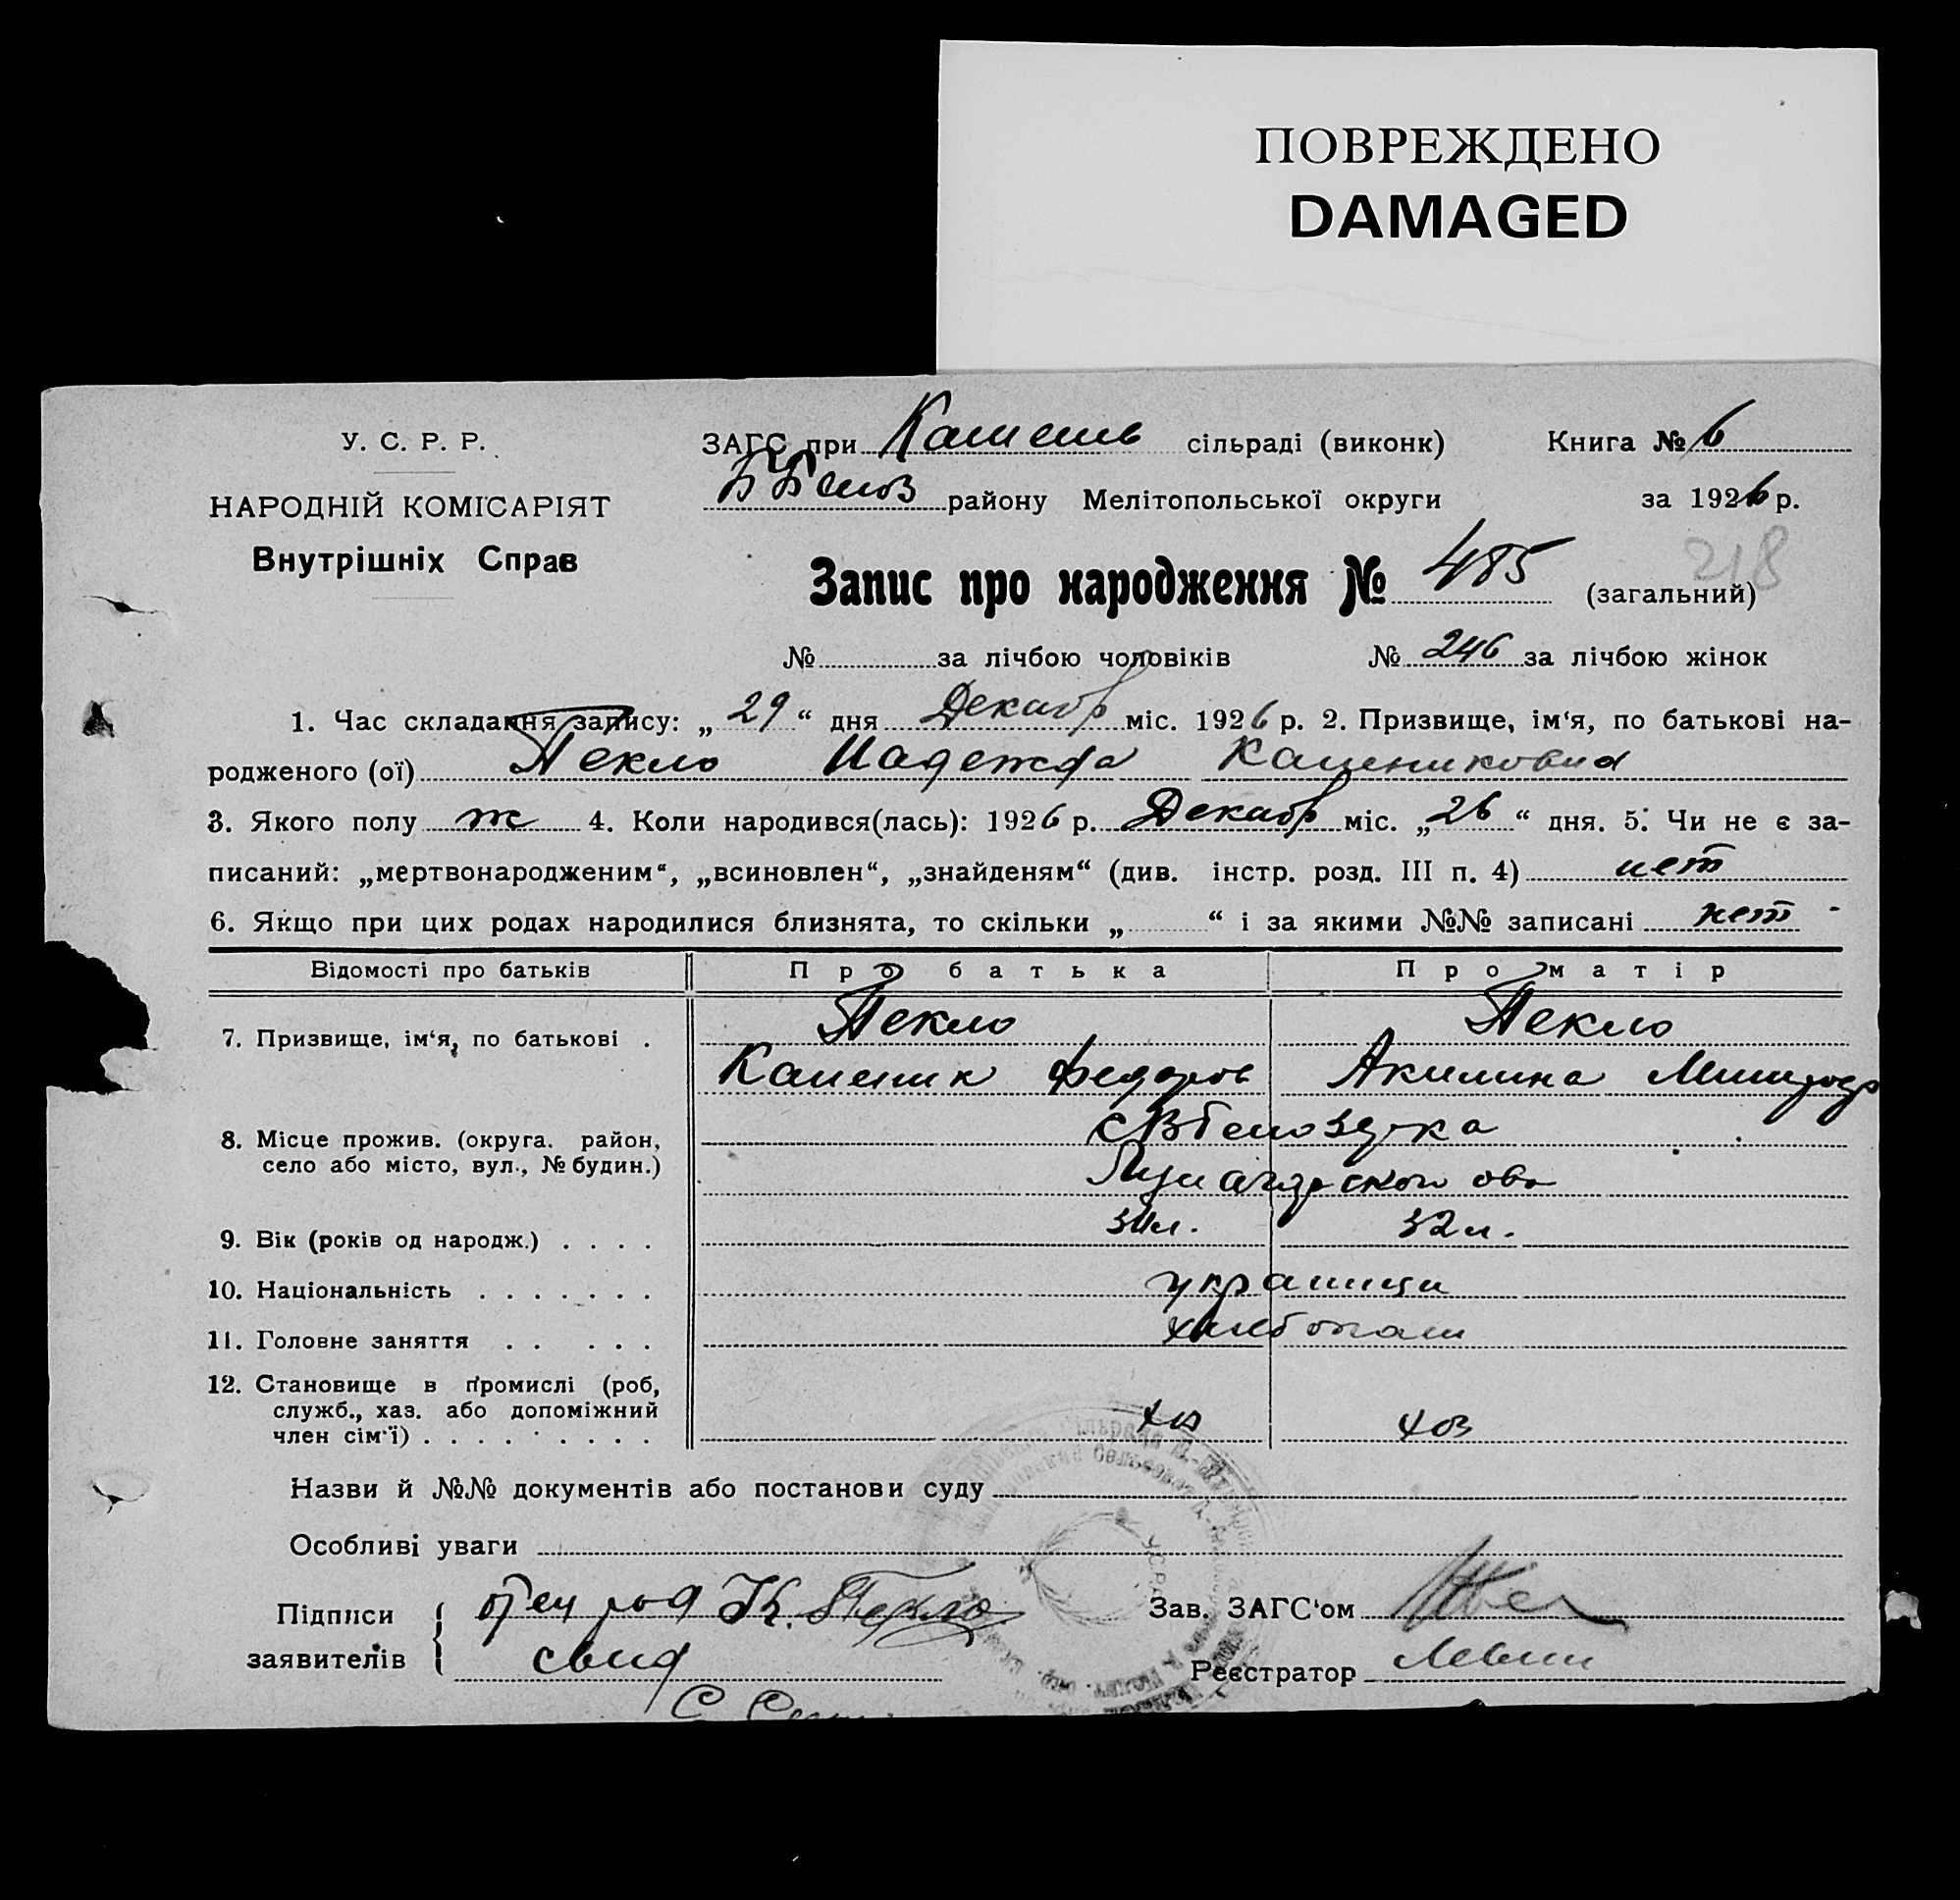 ПОВРЕЖДЕНО
DAMAGED
У. С. Р. Р.
ЗАГС при Камень сільраді (виконк) Книга № 6
НАРОДНІЙ КОМІСАРІЯТ
ББелоз району Мелітопольської округи за 1926 р.
Внутрішніх Справ
Запис про народження № 485 (загальний) 218
№ за лічбою чоловіків № 246 за лічбою жінок
1. Час складання запису: „29“ дня Декабр міс. 1926 р. 2. Призвище, ім‘я, по батькові на-
родженого (ої) Пекло Надежда
3. Якого полу ж 4. Коли народився(лась): 1926 р. Декабр міс. „26“ дня. 5. Чи не є за-
писаний: „мертвонародженим“, „всиновлен“, „знайденям“ (див. інстр. розд. III п. 4) нет
6. Якщо при цих родах народилися близнята, то скільки „ “ і за якими №№ записані нет
Відомості про батьків Про батька Про матір
7. Призвище, ім‘я, по батькові . Пекло Пекло
Федоров Акилина
8. Місце прожив. (округа. район,
село або місто, вул., № будин.)
9. Вік (років од народж.) . . . . 34 л. 32 л.
10. Національність . . . . . . . украинци
11. Головне заняття . . . . . хлебопаш
12. Становище в промислі (роб,
служб., хаз. або допоміжний
член сім‘ї) . . . . . . . . .
Назви й №№ документів або постанови суду
Особливі уваги
Підписи отец К. Пекло Зав. ЗАГС‘ом
заявителів свид Реєстратор Левин